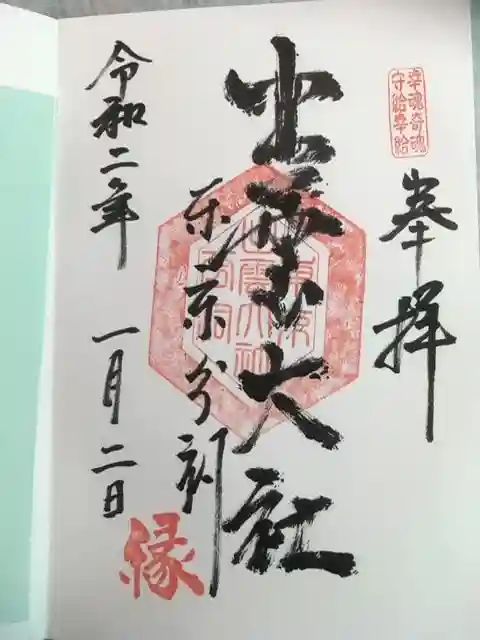 幸魂奇魂
守給幸給
奉拝
出雲大社
東京分祠
令和二年 一月二日
縁